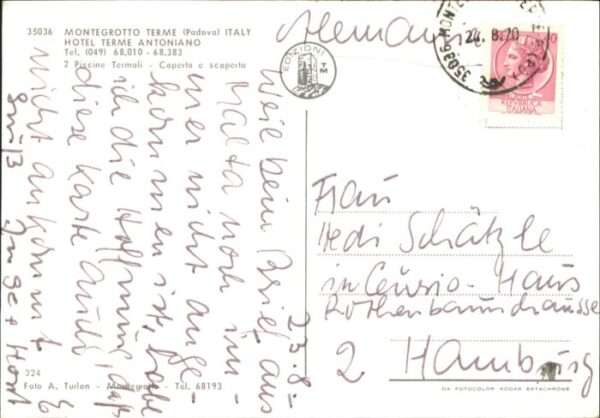 35036 MONTEGROTTO TERME (Padova) ITALY
HOTEL TERME ANTONIANO
Tel. (049) 68.010 - 68.382
2 Piscine Termali - Coperta e scoperta
EDIZIONI
TM
Alemania
24.8.70
35036-MONTE
23.8.
Weil beim Brief aus
Malta noch im-
mer nicht ange-
kommen ist, habe
ich die Hoffnung, daß
diese Karte auch
nicht ankommt.
Gruß
Horst
Frau
Hedi Schätzle
Haus
Rothenbaumchaussee
2 Hamburg
324
Foto A. Turlon - Montegrotto - Tel. 68193
DA FOTOCOLOR KODAK EKTACHROME